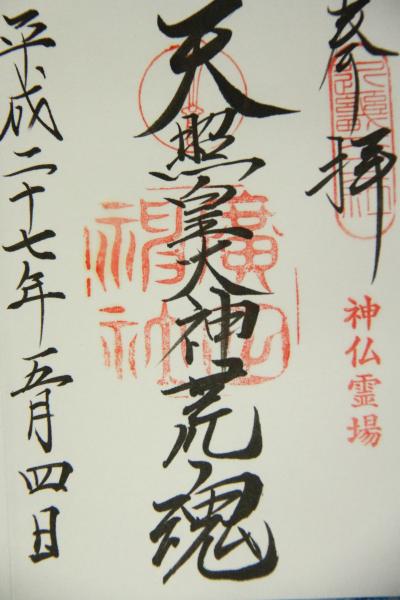 奉拝
神仏霊場
天照皇大神荒魂
廣田神社
平成二十七年五月四日